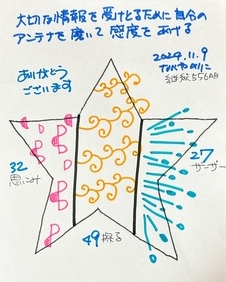 大切な情報を受けとるために自分の
アンテナを磨いて感度をあげる
ありがとう
ございます
2024.11.9
32
思いこみ
27
ザーザー
49 探る